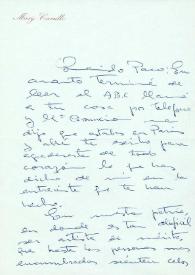 Mary Carrillo
Querido Paco: En
cuanto terminé de
leer el A.B.C. llamé
a tu casa por teléfono
y la me
dijo que estabas en Paris
y ahí te escribo para
agradecerte de todo
corazón lo que has
dicho de mi en la
entrevista que te han
hecho.
En nuestra patria,
en donde es tan dificil
ser artista
que hasta las personas
encumbradas sienten celos